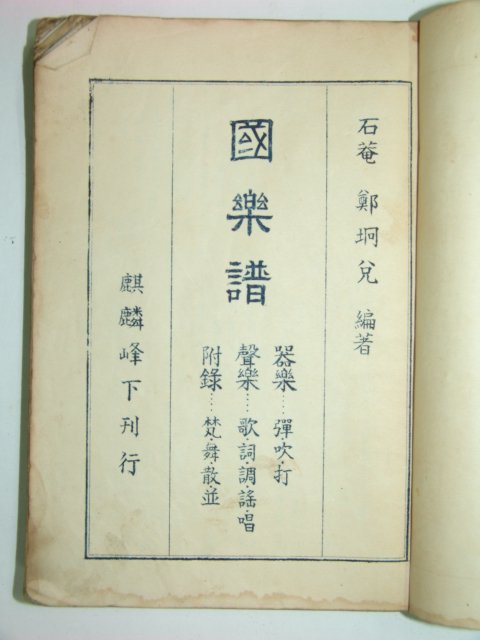 石菴 鄭坰兌 編著
國樂譜
器樂……彈·吹·打
聲樂……歌·詞·調·謠·唱
附錄……梵·舞·散·並
麒麟峰下刊行